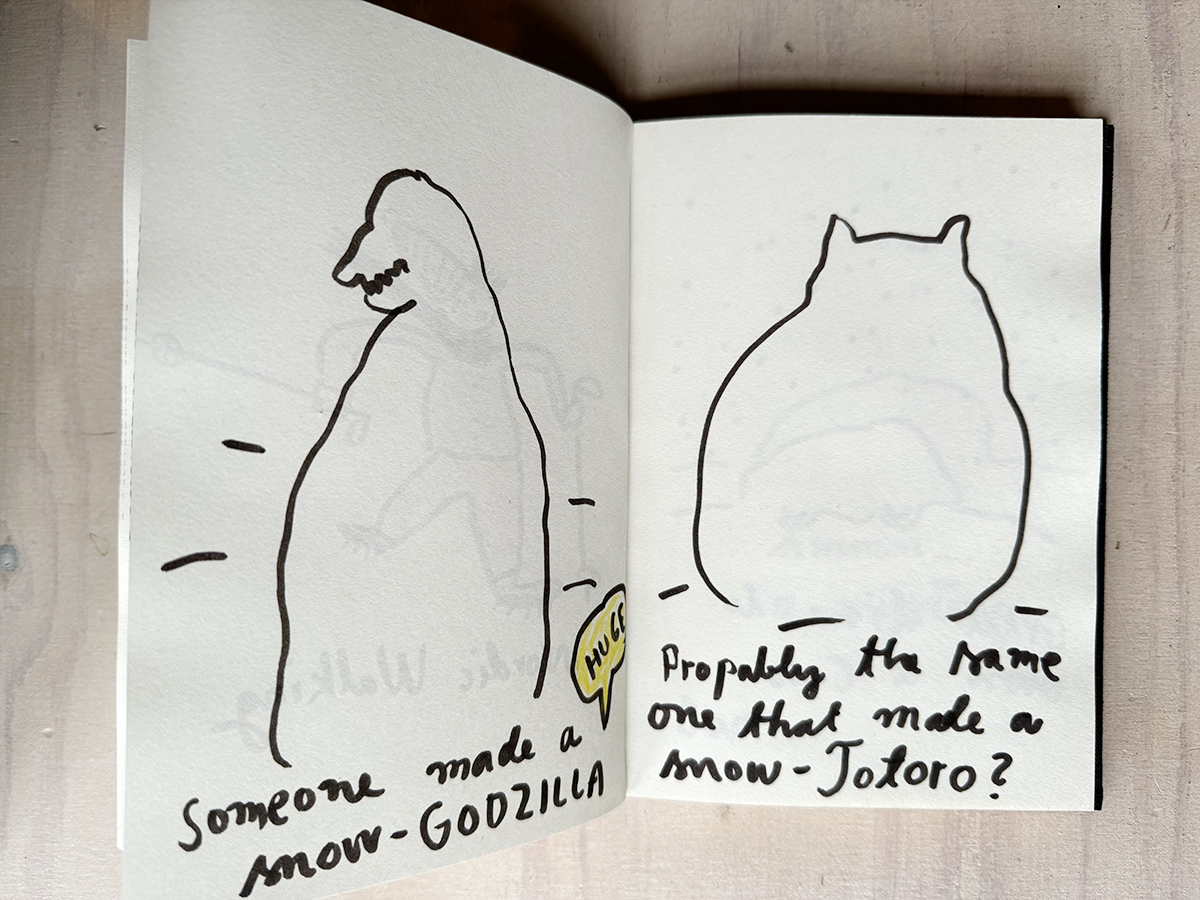 Someone made a
HUGE
snow-GODZILLA
Propably the same
one that made a
snow-Totoro?